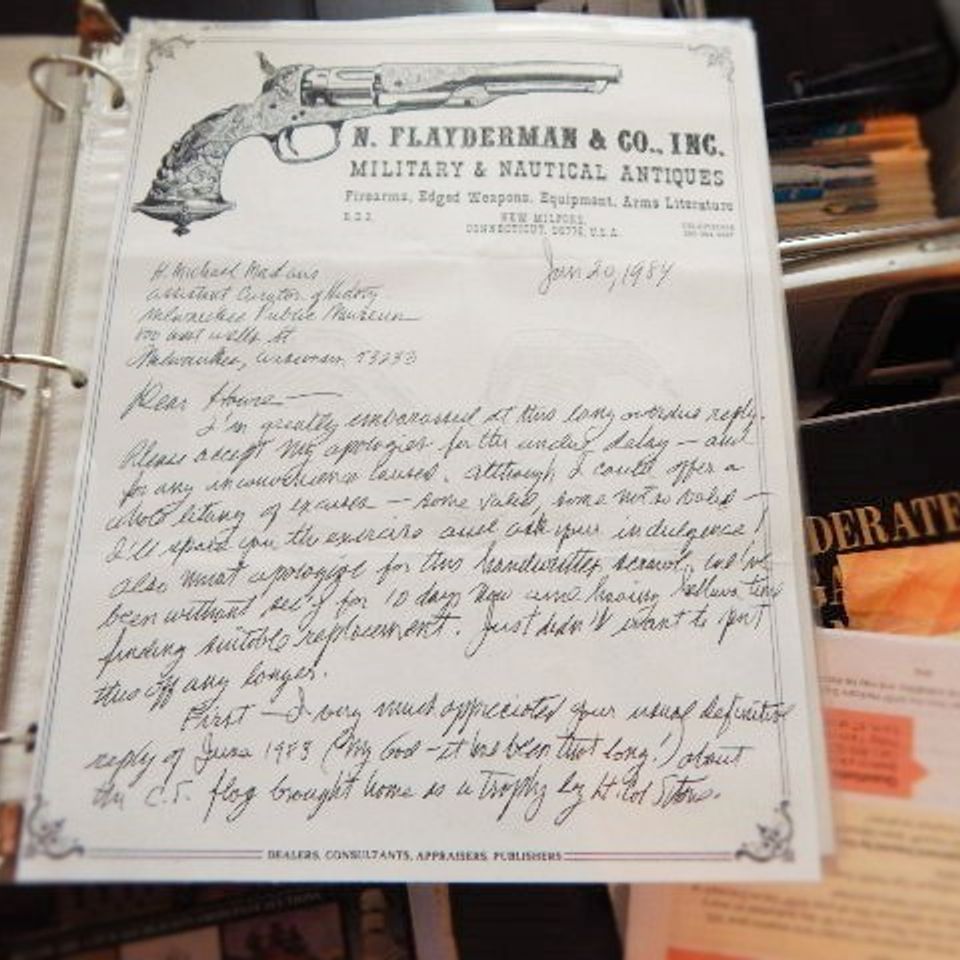 N. FLAYDERMAN & CO., INC.
MILITARY & NAUTICAL ANTIQUES
Firearms, Edged Weapons, Equipment, Arms Literature
NEW MILFORD,
CONNECTICUT, 06776, U.S.A.
Jan 20, 1984
H. Michael Madaus
Assistant Curator of History
Milwaukee Public Museum
800 West Wells St
Milwaukee, Wisconsin, 53233
Dear Howie —
I'm greatly embarassed at this long overdue reply.
Please accept my apologies for the undue delay — and
for any inconvenience caused. Although I could offer a
whole litany of excuses — some valid, some not so valid —
I'll spare you the exercise and ask your indulgence! I
also must apologize for this handwritten scrawl, we've
been without sec'y for 10 days now and having helluva time
finding suitable replacement. Just didn't want to put
this off any longer.
First — I very much appreciated your usual definitive
reply of June 1983 (My God - it has been that long!) about
the C.S. flag brought home as a trophy by Lt. Col Stone.
DEALERS, CONSULTANTS, APPRAISERS, PUBLISHERS
DERATE